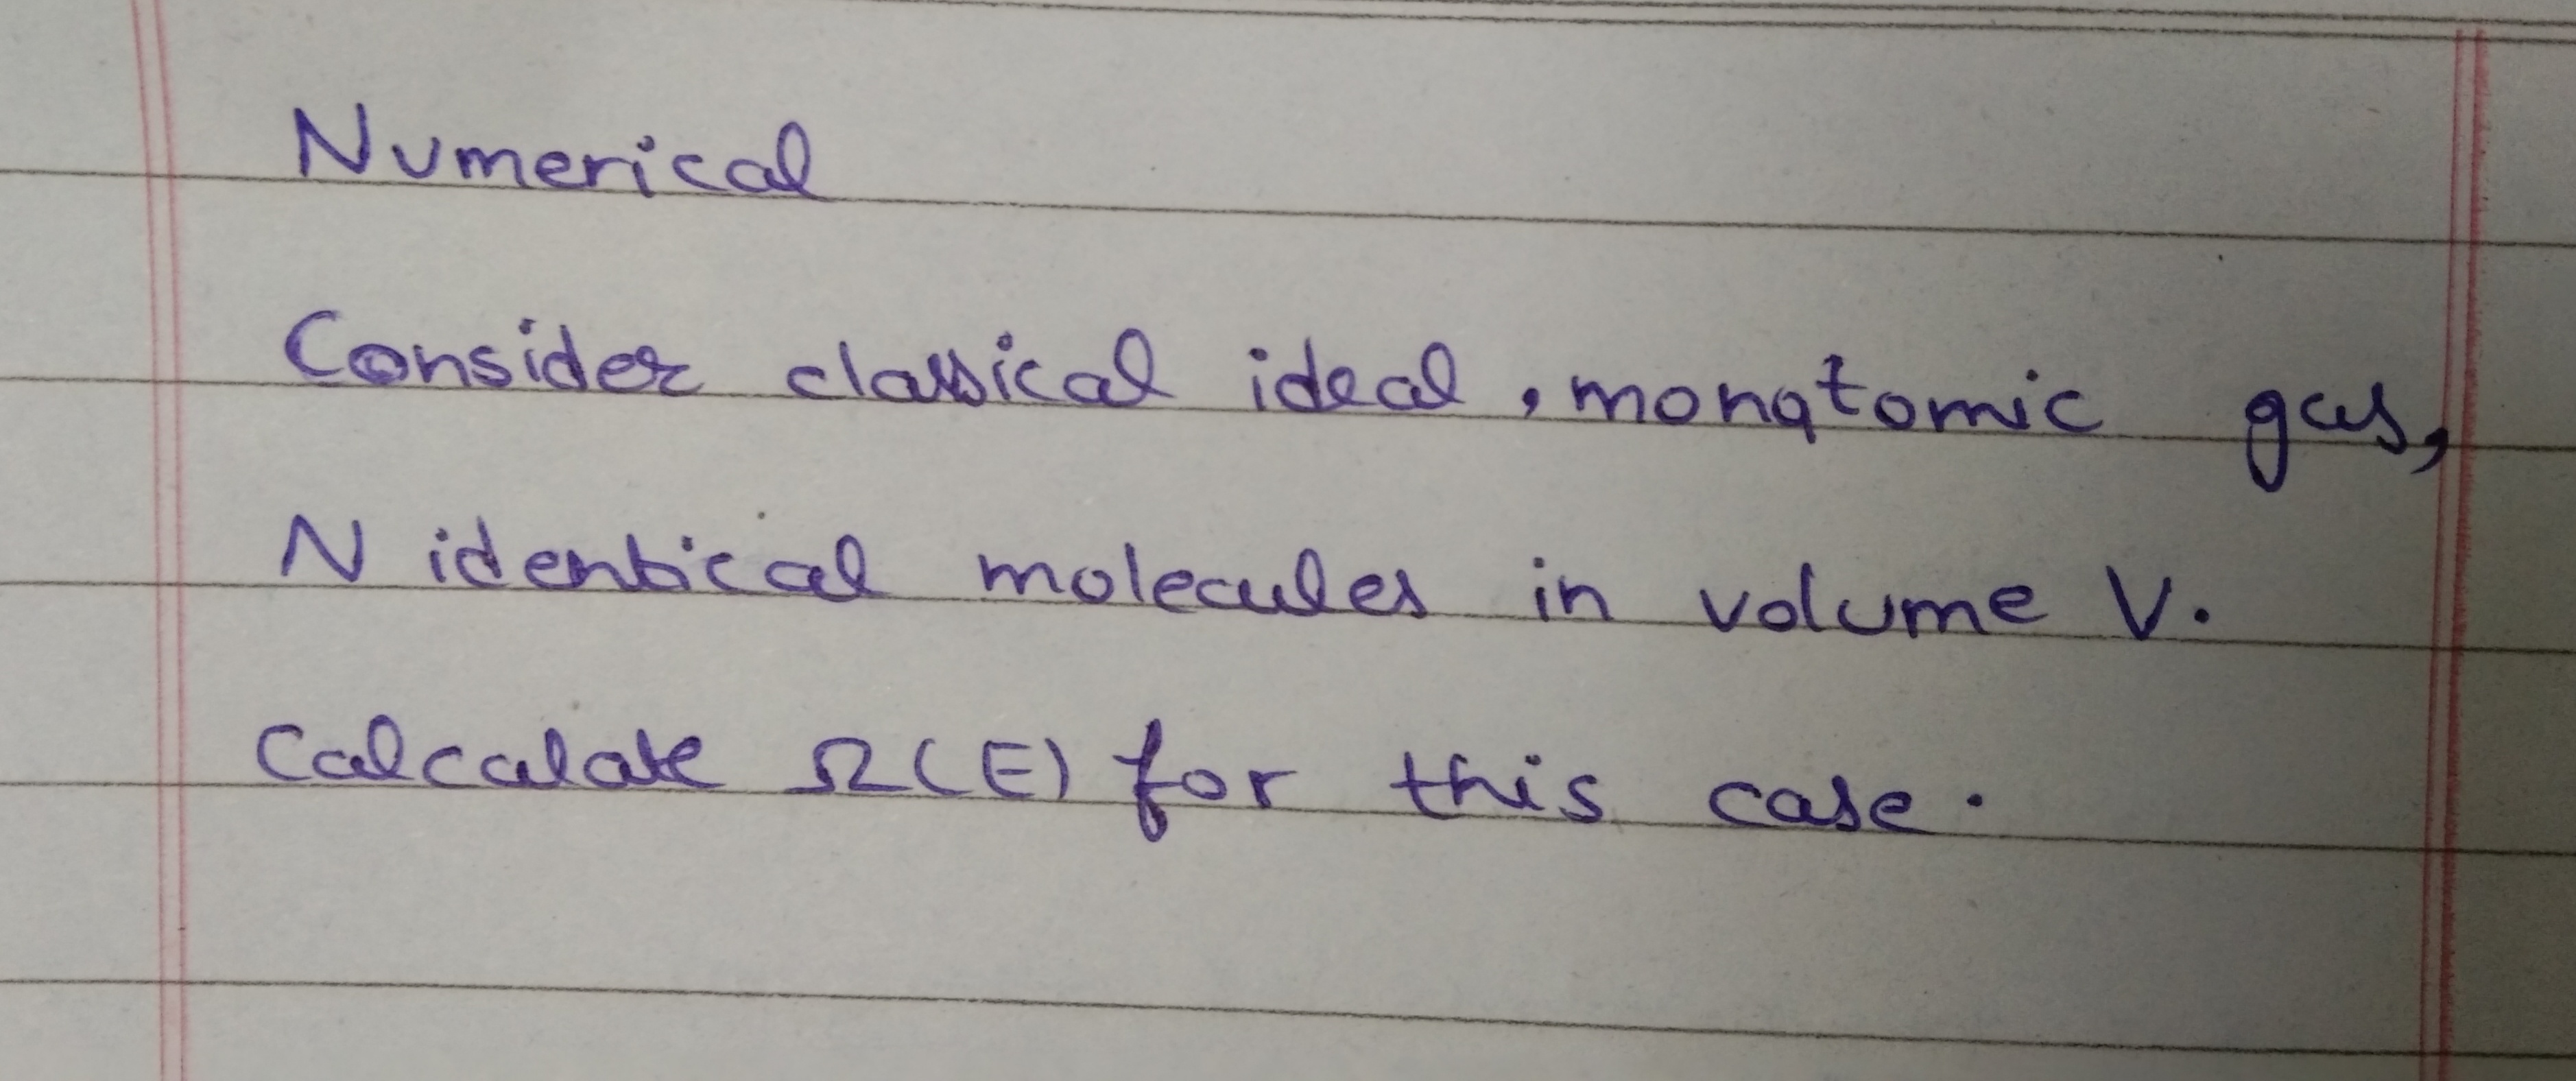 Numerical
Consider classical ideal, monatomic gas,
N identical molecules in volume V.
Calculate Ω(E) for this case.